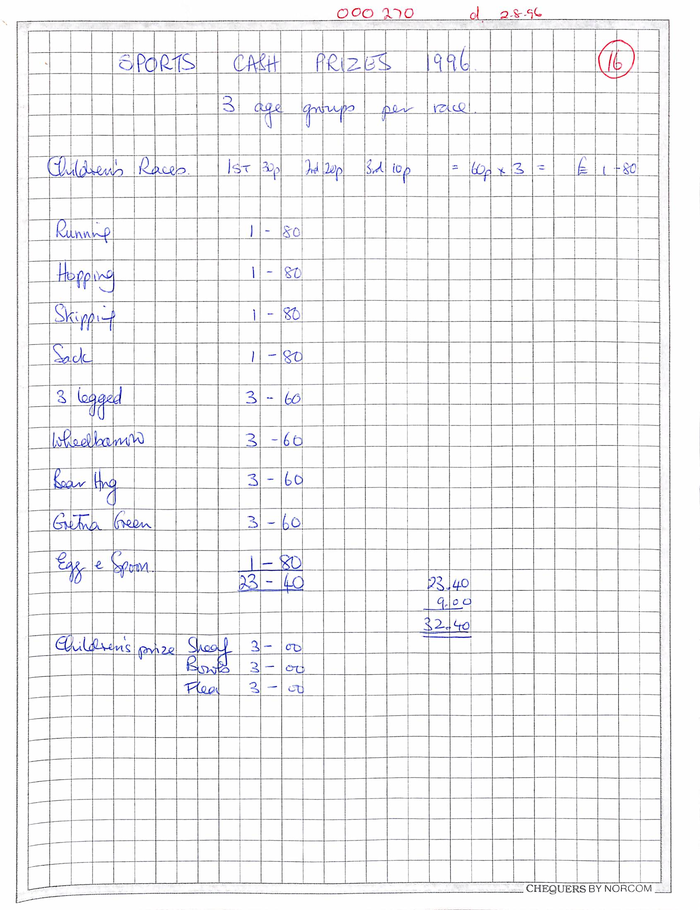 000 270 d 2-8-96
SPORTS CASH PRIZES 1996 16
3 age groups per race.
Children's Races. 1ST 30p 2nd 20p 3rd 10p = 60p x 3 = £ 1-80
Running 1 - 80
Hopping 1 - 80
Skipping 1 - 80
Sack 1 - 80
3 legged 3 - 60
Wheelbarrow 3 - 60
Bear Hug 3 - 60
Gretna Green 3 - 60
Egg & Spoon. 1 - 80
23 - 40 23.40
9.00
32.40
Children's prize Sheaf 3 - 00
Bowls 3 - 00
3 - 00
CHEQUERS BY NORCOM